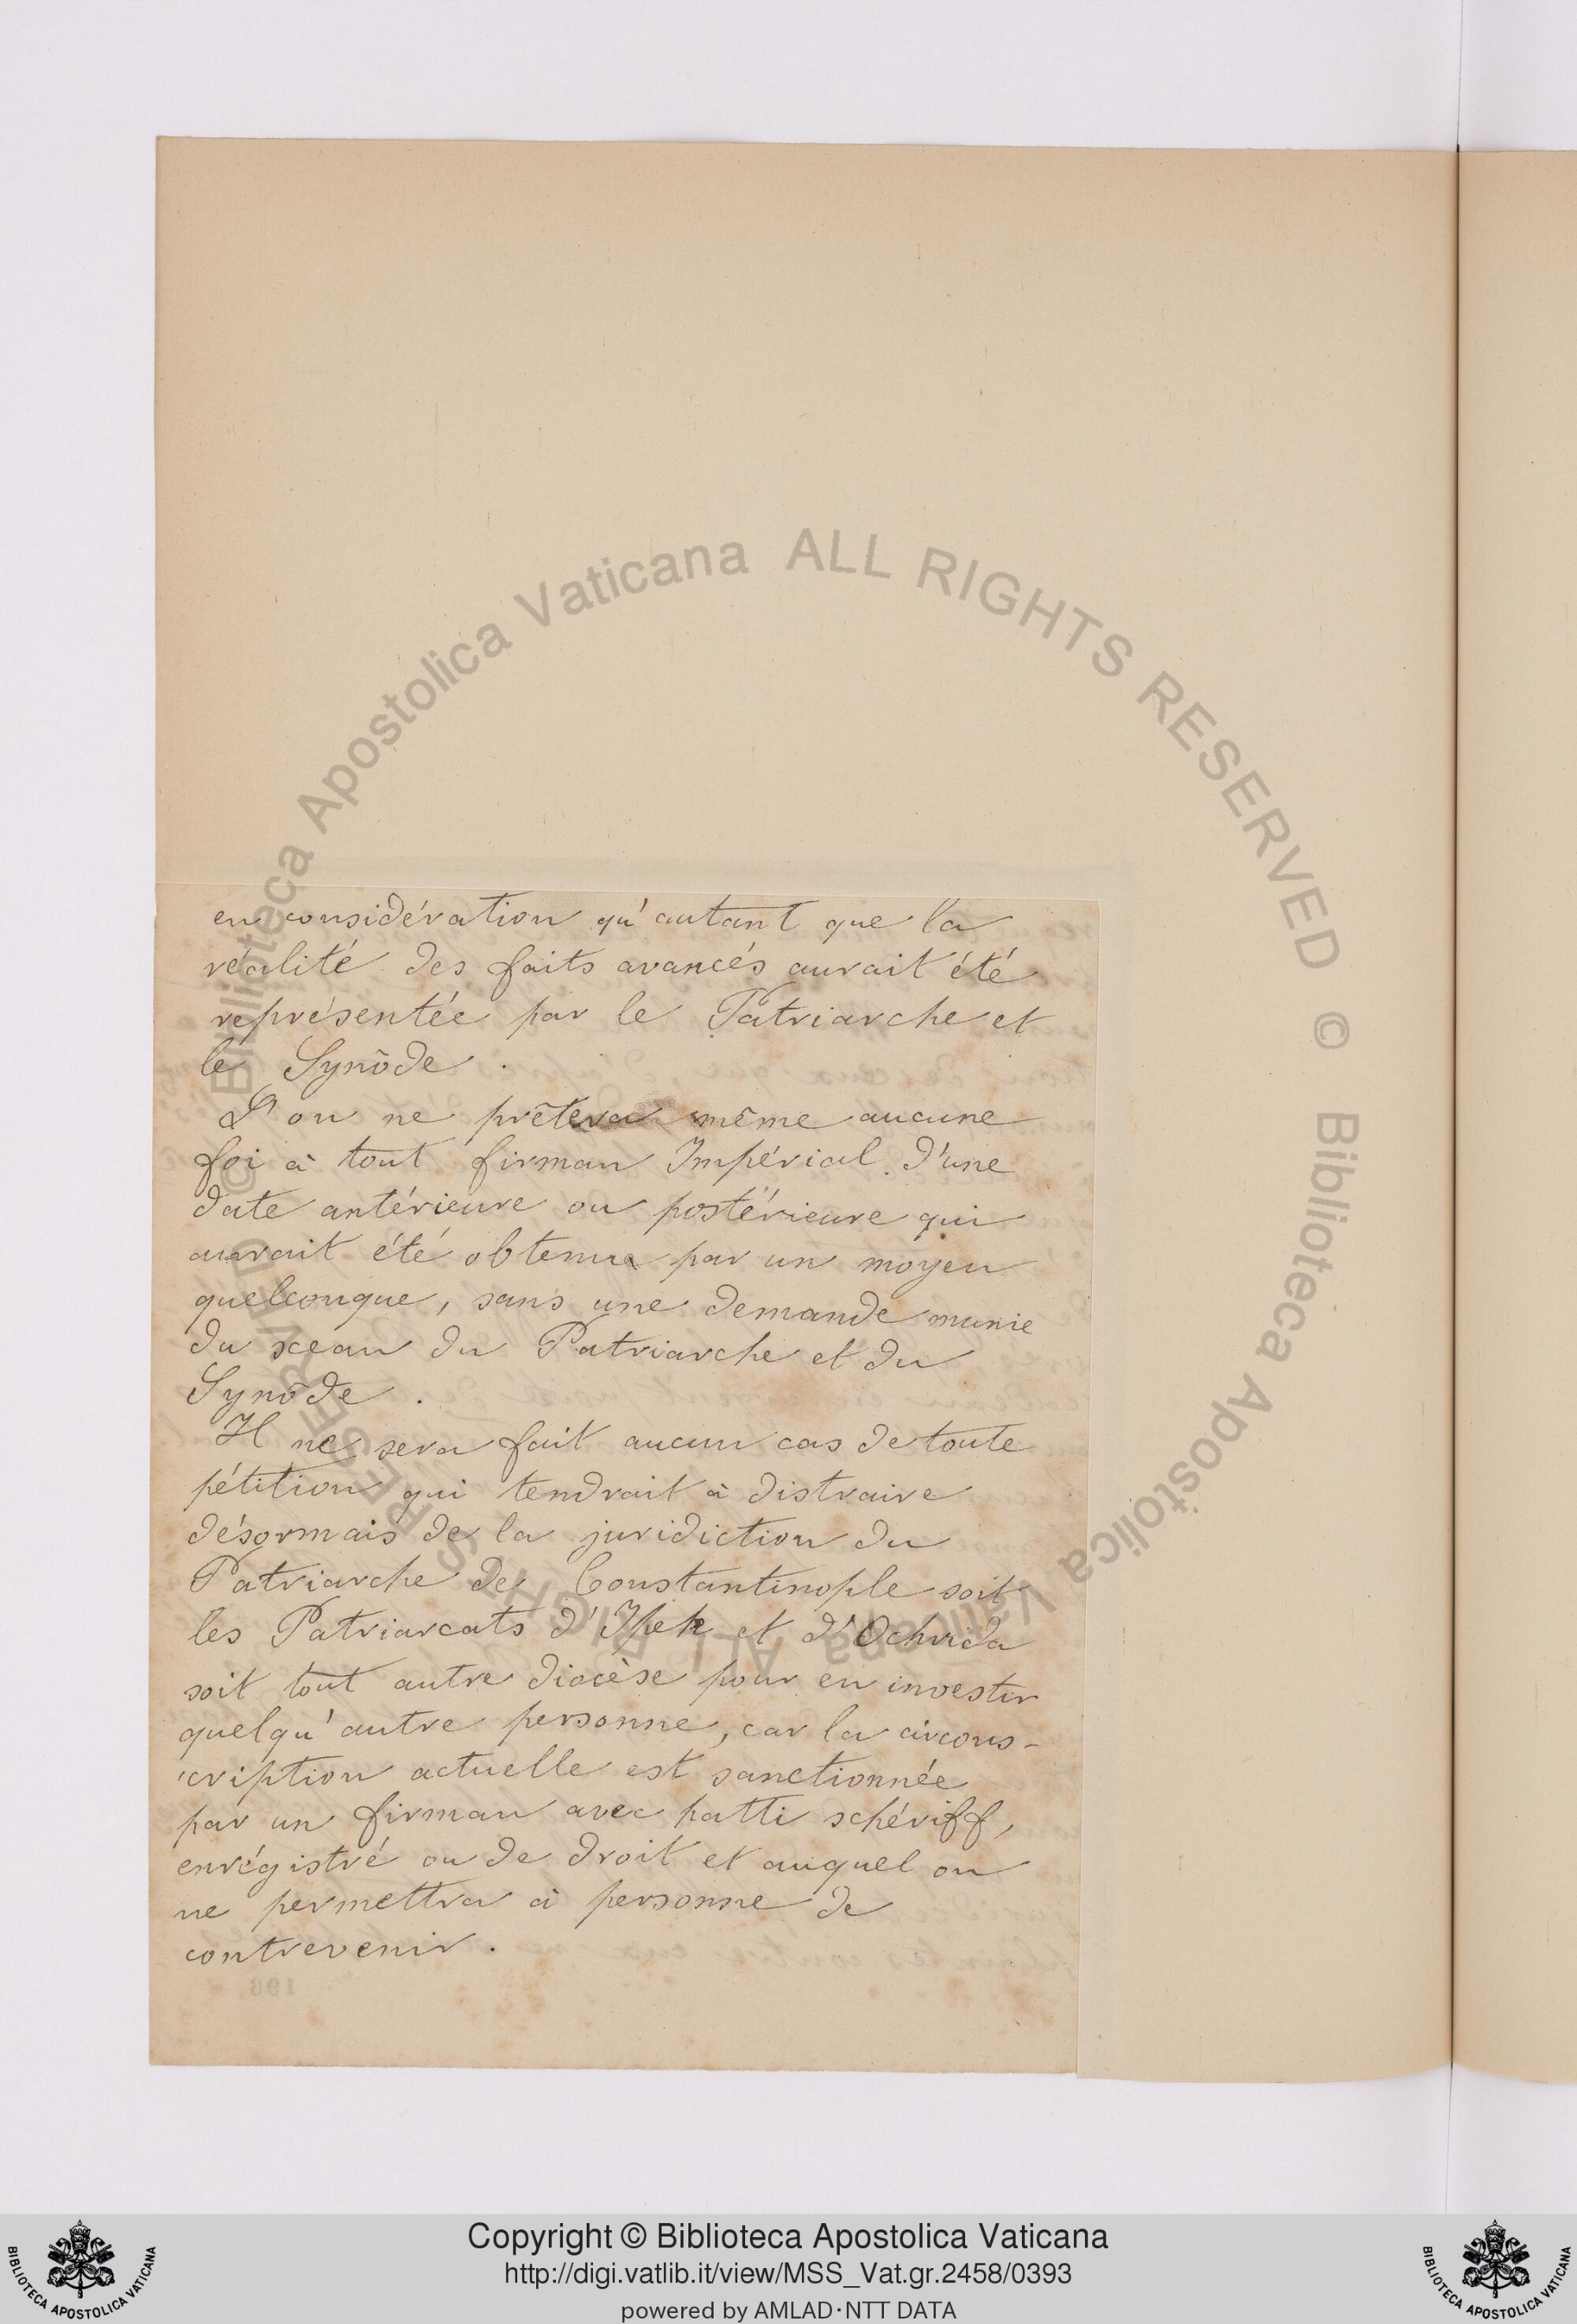 en considération qu'autant que la
réalité des faits avancés aurait été
représentée par le Patriarche et
le Synôde.
L'on ne prêtera même aucune
foi à tout firman Impérial d'une
date antérieure ou postérieure qui
aurait été obtenu par un moyen
quelconque, sans une demande munie
du sceau du Patriarche et du
Synôde.
Il ne sera fait aucun cas de toute
pétition qui tendrait à distraire
désormais de la juridiction du
Patriarche de Constantinople soit
les Patriarcats d'Ipek et d'Ochrida
soit tout autre diocèse pour en investir
quelqu'autre personne, car la circons-
cription actuelle est sanctionnée
par un firman avec hatti schériff,
enrégistré ou de droit et auquel on
ne permettra à personne de
contrevenir.
196
© Biblioteca Apostolica Vaticana ALL RIGHTS RESERVED © Biblioteca Apostolica Vaticana ALL RIGHTS RESERVED
Copyright © Biblioteca Apostolica Vaticana
http://digi.vatlib.it/view/MSS_Vat.gr.2458/0393
powered by AMLAD·NTT DATA
BIBLIOTECA APOSTOLICA VATICANA
BIBLIOTECA APOSTOLICA VATICANA